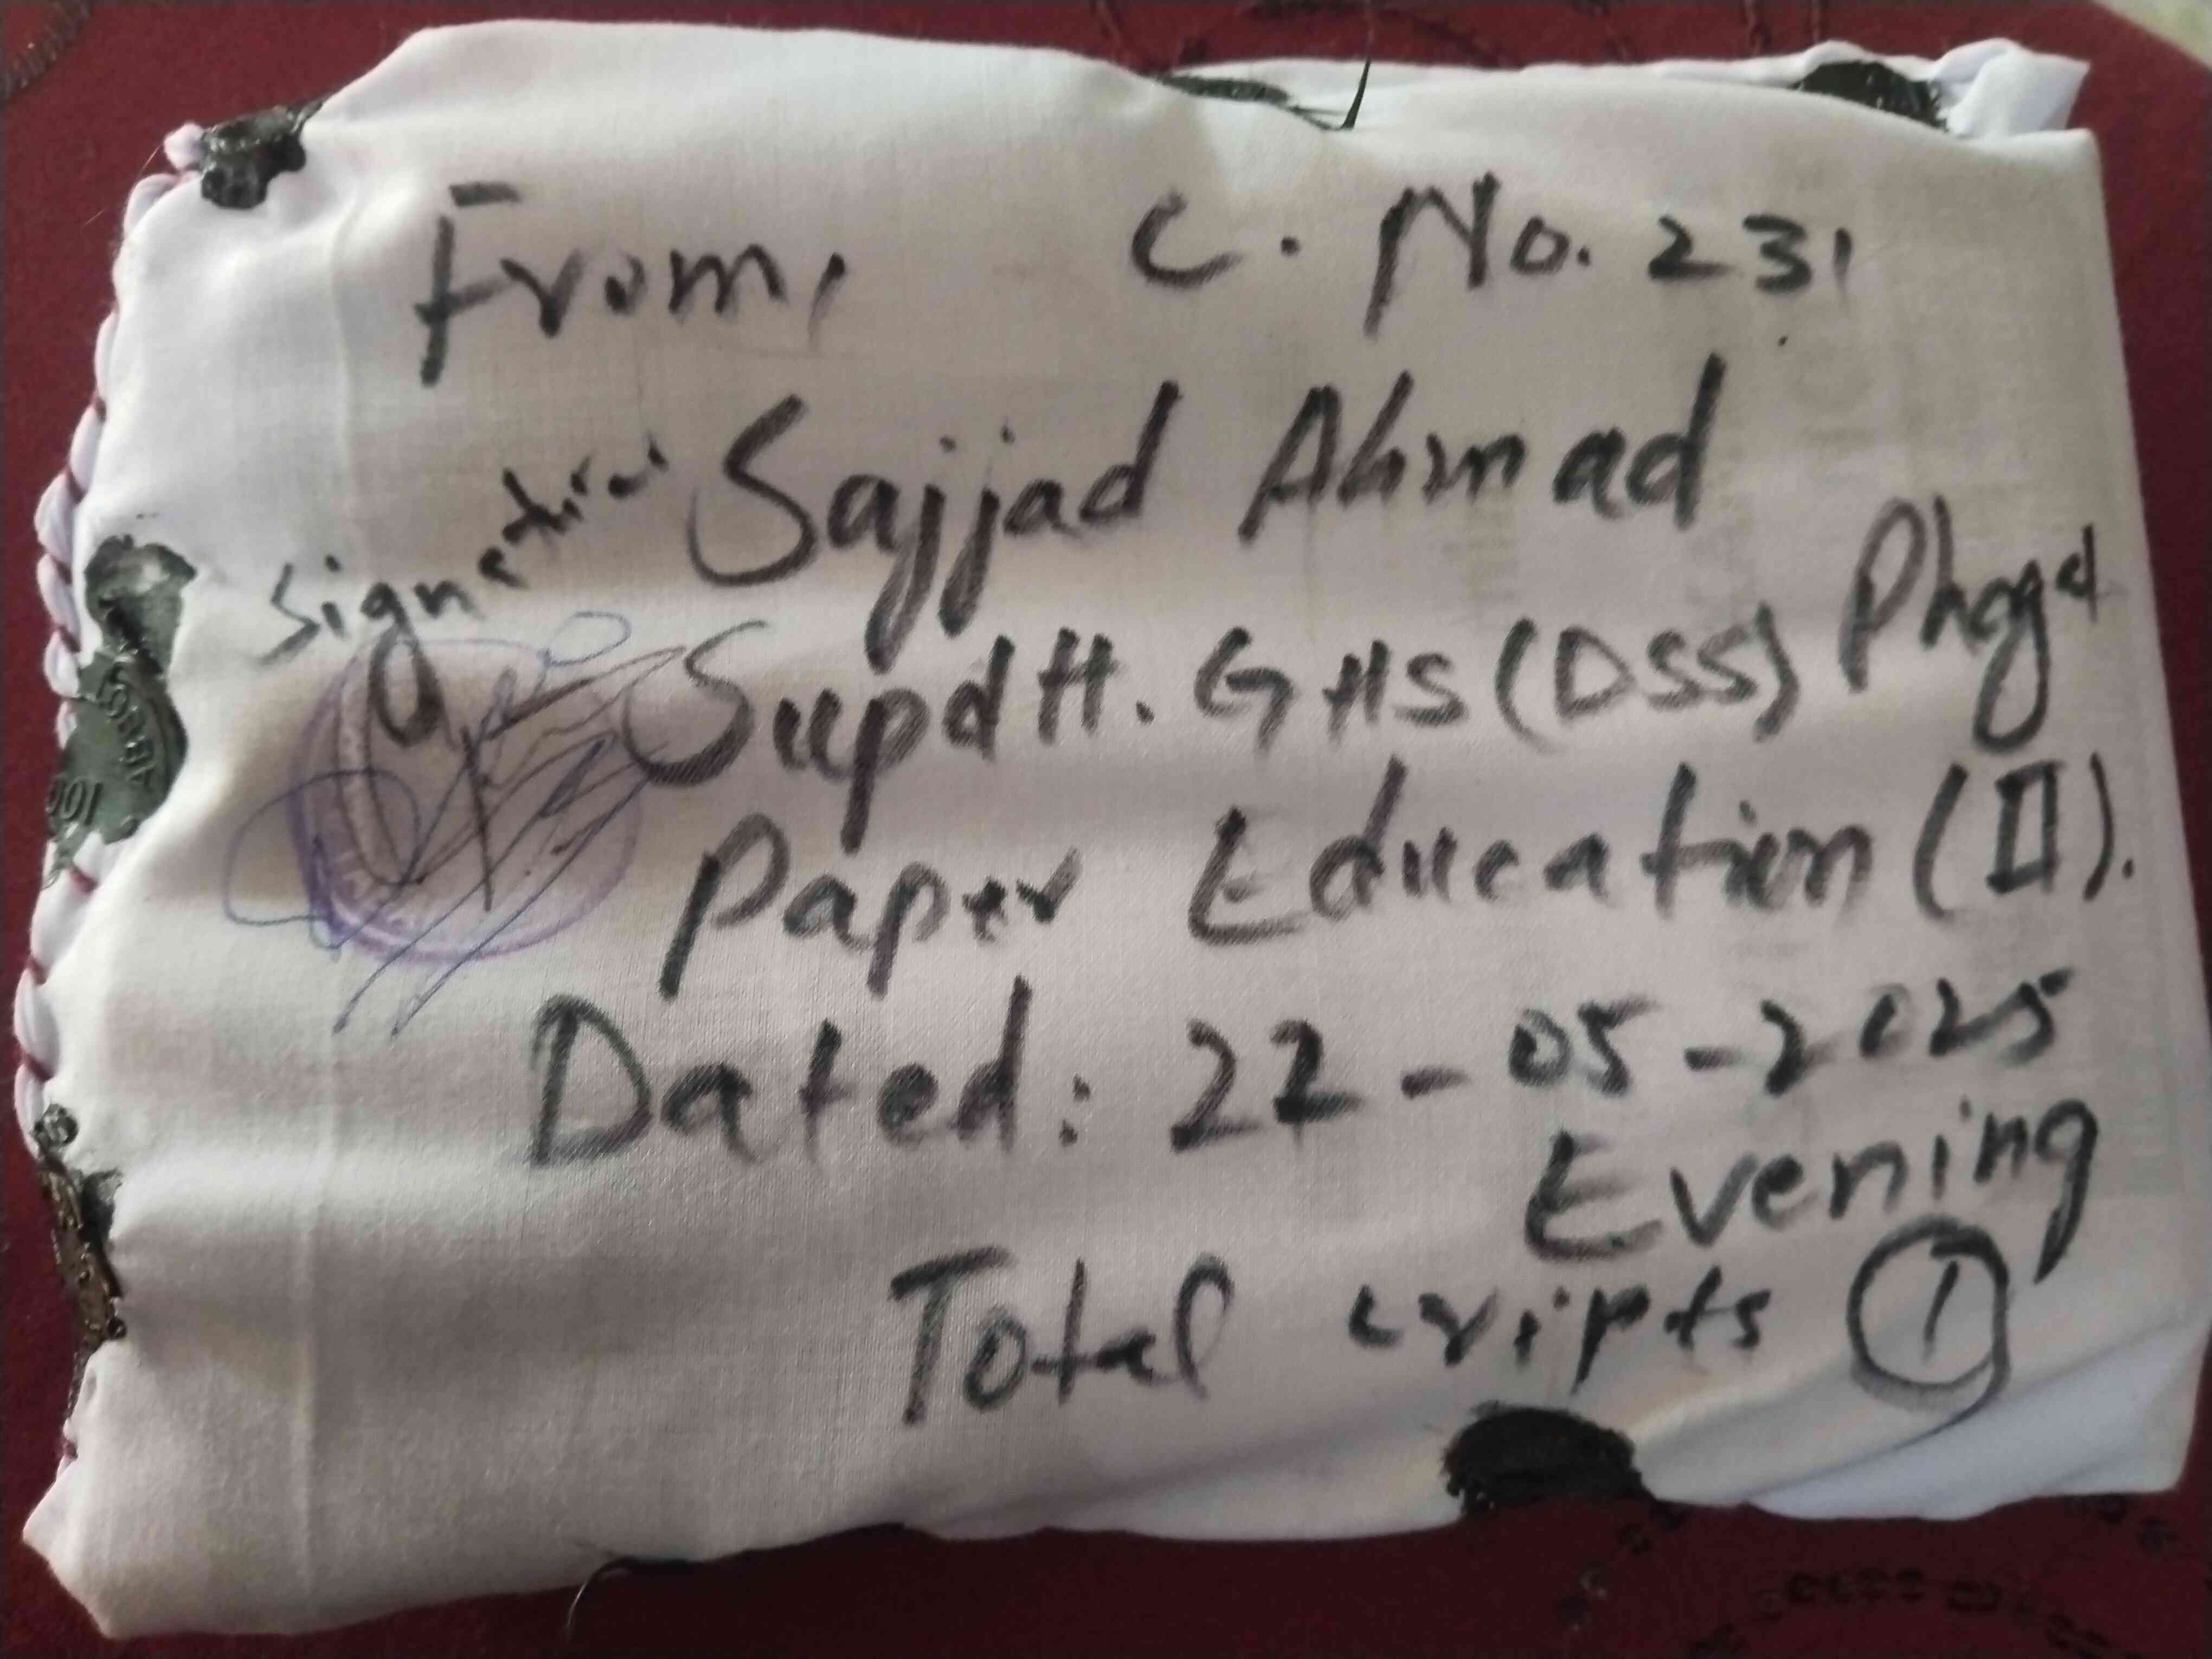 From, C. No. 231
Sajjad Ahmad
Signature
Supdtt. GHS (DSS) Phgd
Paper Education (II).
Dated: 22-05-2025
Evening
Total cripts 1